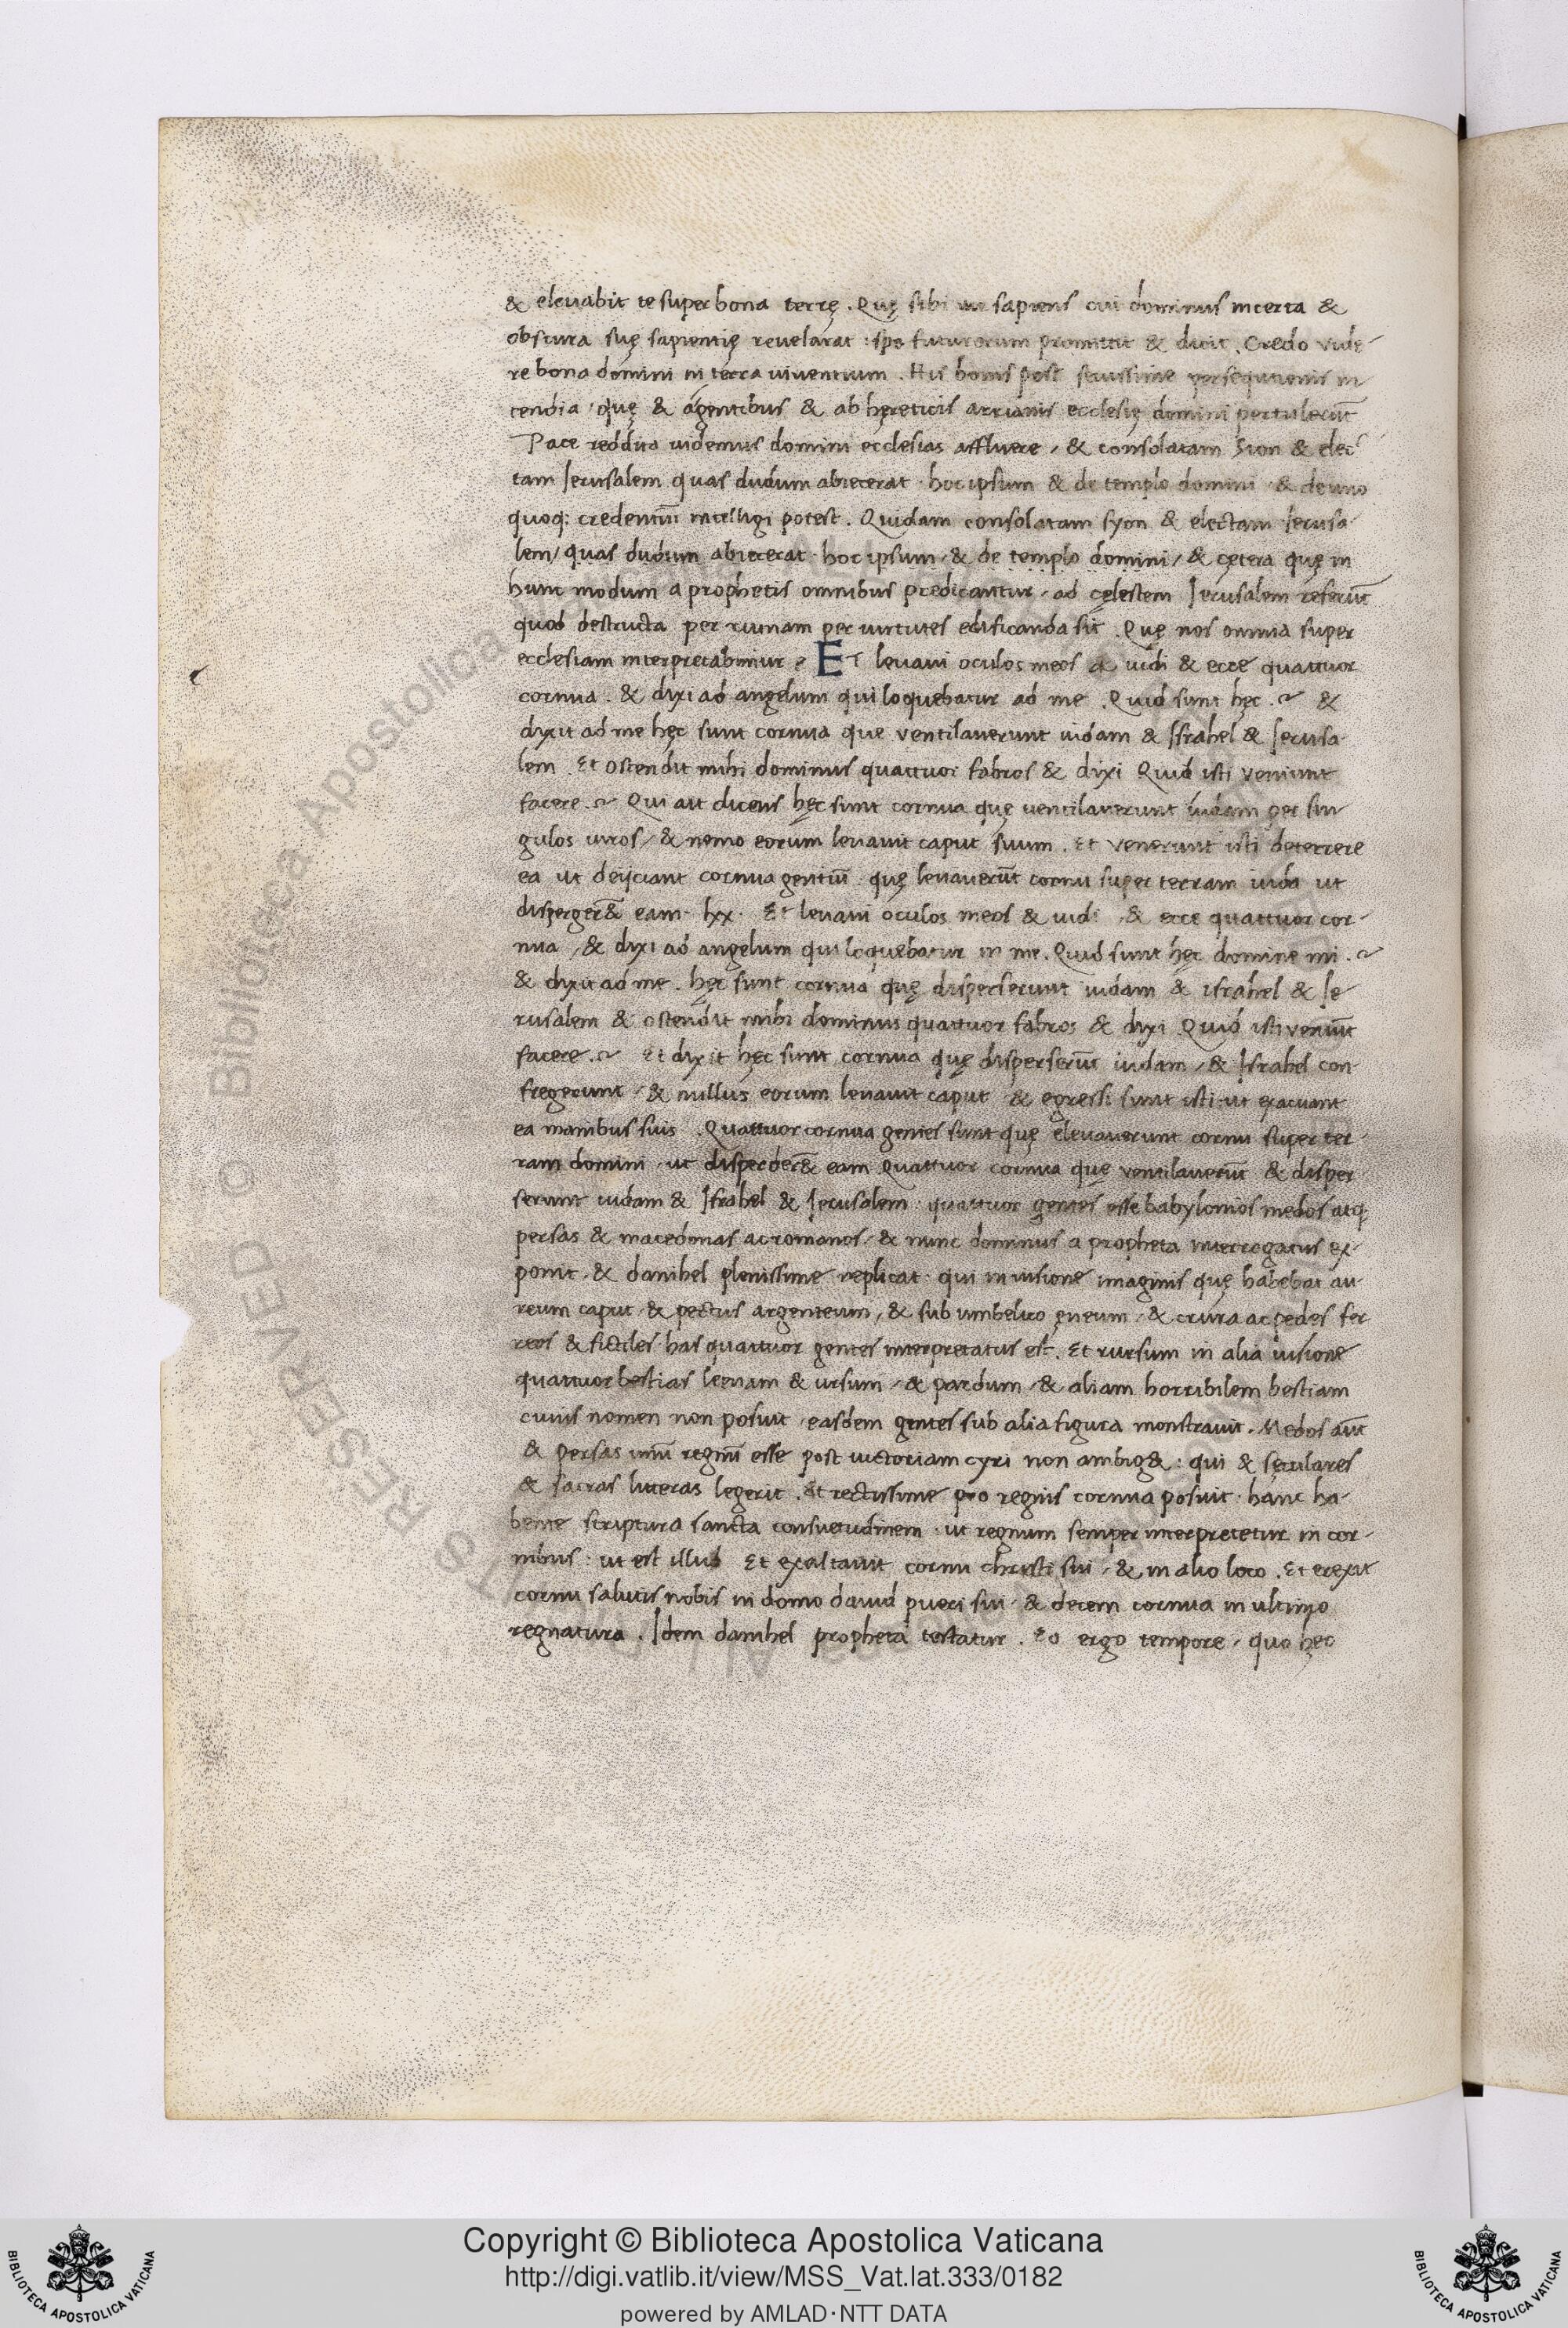 & eleuabit te super bona terrę . Quę sibi uir sapiens cui dominus incerta &
obscura suę sapientię reuelarat : spe futurorum promittit & dicit . Credo vide-
re bona domini in terra viventium . His bonis post seuissime persequtionis in
cendia quę & agentibus & ab hęreticis arrianis ecclesię domini pertulerūt
Pace reddita videmus domini ecclesias affluere , & consolatam Sion & elec-
tam Jerusalem quas dudum abiecerat . hoc ipsum & de templo domini & de uno
quoq; credentiū intelligi potest . Quidam consolatam syon & electam Jerusa-
lem / quas dudum abiecerat . hoc ipsum , & de templo domini , & cętera quę in
hunc modum a prophetis omnibus predicantur , ad cęlestem Jerusalem referūt
quod destructa per ruinam per uirtutes edificanda sit . Quę nos omnia super
ecclesiam interpretabimur . ET leuaui oculos meos & uidi & ecce quattuor
cornua . & dixi ad angelum qui loquebatur ad me . Quid sunt hęc . ~ &
dixit ad me hęc sunt cornua que ventilauerunt iudam & Israhel & Jerusa-
lem . Et ostendit mihi dominus quattuor fabros & dixi Quid isti veniunt
facere . ~ Qui ait dicens hęc sunt cornua quę uentilauerunt iudam per sin
gulos uiros , & nemo eorum leuauit caput suum . Et venerunt isti deterrere
ea ut deijciant cornua gentiū quę leuauerūt cornu super terram iuda ut
dispergeren& eam . lxx . Et leuaui oculos meos & uidi , & ecce quattuor cor-
nua , & dixi ad angelum qui loquebatur in me . Quid sunt hęc domine mi . ~
& dixit ad me . hęc sunt cornua quę disperserunt iudam & israhel & Je
rusalem & ostendit mihi dominus quattuor fabros & dixi Quid isti veniūt
facere . ~ Et dixit hęc sunt cornua quę disperserūt iudam , & Israhel con-
fregerunt , & nullus eorum leuauit caput & egressi sunt isti ut exacuant
ea manibus suis . Quattuor cornua gentes sunt quę eleuauerunt cornu super ter-
ram domini , ut disperder& eam Quattuor cornua quę ventilauerūt & disper
serunt iudam & Israhel & Jerusalem . quattuor gentes esse babylonios medos atq;
persas & macedonas ac romanos , & nunc dominus a propheta interrogatus ex-
ponit , & danihel plenissime replicat . qui in uisione imaginis quę habebat au-
reum caput , & pectus argenteum , & sub umbelico ęneum , & crura ac pedes fer
reos & fictiles has quattuor gentes interpretatus est . Et rursum in alia uisione
quattuor bestias leenam & ursum , & pardum , & aliam horribilem bestiam
cuius nomen non posuit , easdem gentes sub alia figura monstrauit . Medos aūt
& persas unū regnū esse post uictoriam cyri non ambig& : qui & sęculares
& sacras litteras legerit . Et rectissime pro regnis cornua posuit . hanc ha-
bente scriptura sancta consuetudinem . ut regnum semper interpretetur in cor-
nibus : ut est illud Et exaltauit cornu christi sui , & in alio loco . Et erexit
cornu salutis nobis in domo dauid pueri sui . & decem cornua in ultimo
regnatura . Idem danihel propheta testatur . Eo ergo tempore , quo hęc
RESERVED © Biblioteca Apostolica
Copyright © Biblioteca Apostolica Vaticana
http://digi.vatlib.it/view/MSS_Vat.lat.333/0182
powered by AMLAD·NTT DATA
BIBLIOTECA APOSTOLICA VATICANA
BIBLIOTECA APOSTOLICA VATICANA